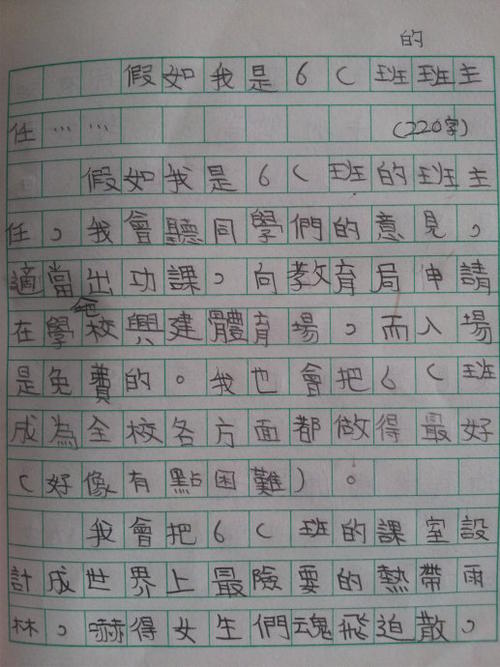 的
假如我是6C班班主
任……(220字)
假如我是6C班的班主
任，我會聽同學們的意見，
適當出功課，向教育局申請
在學校興建體育場，而入場
是免費的。我也會把6C班
成為全校各方面都做得最好
(好像有點困難)。
我會把6C班的課室設
計成世界上最險要的熱帶雨
林，嚇得女生們魂飛迫散，